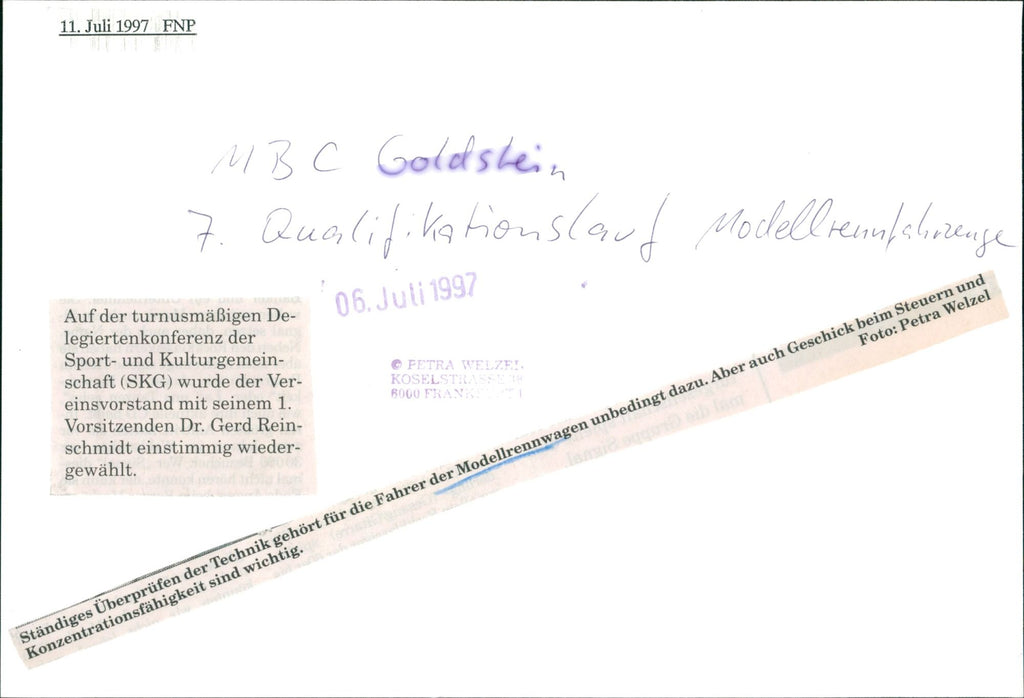 11. Juli 1997 FNP
MBC Goldstein
7. Qualifikationslauf Modellrennfahrzeuge
06. Juli 1997
Auf der turnusmäßigen De-
legiertenkonferenz der
Sport- und Kulturgemein-
schaft (SKG) wurde der Ver-
einsvorstand mit seinem 1.
Vorsitzenden Dr. Gerd Rein-
schmidt einstimmig wieder-
gewählt.
© PETRA WELZEL
KOSELSTRASSE
6000 FRANKFURT 1
Ständiges Überprüfen der Technik gehört für die Fahrer der Modellrennwagen unbedingt dazu. Aber auch Geschick beim Steuern und
Konzentrationsfähigkeit sind wichtig.
Foto: Petra Welzel